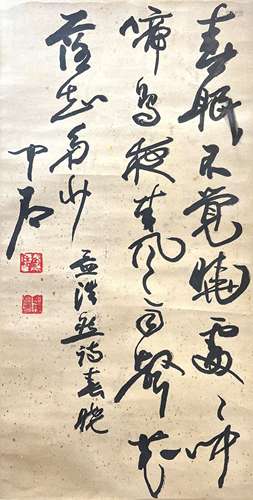 春眠不覺曉處々聞
啼鳥夜來風雨聲花
落知多少
孟浩然詩春曉
中石